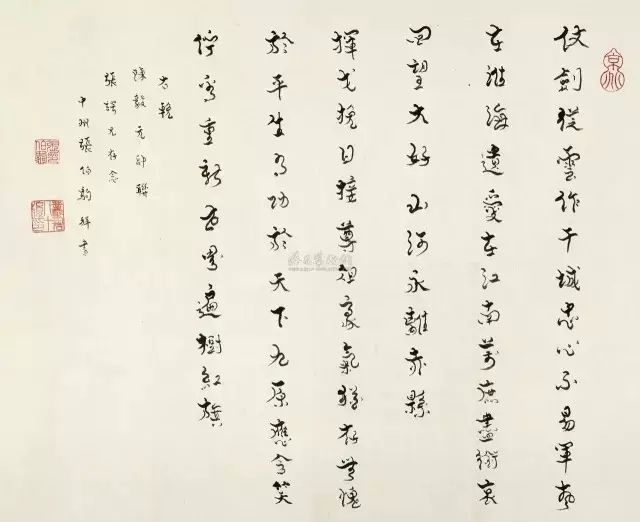 仗劍從雲作干城忠心不易軍聲
在淮海遺愛在江南萬庶盡銜哀
回望大好山河永離赤縣
揮戈挽日接尊俎豪氣猶存無愧
於平生有功於天下九原應含笑
佇看重新世界遍樹紅旗
右輓
陳毅元帥聯
張諤兄存念
中州張伯駒拜書